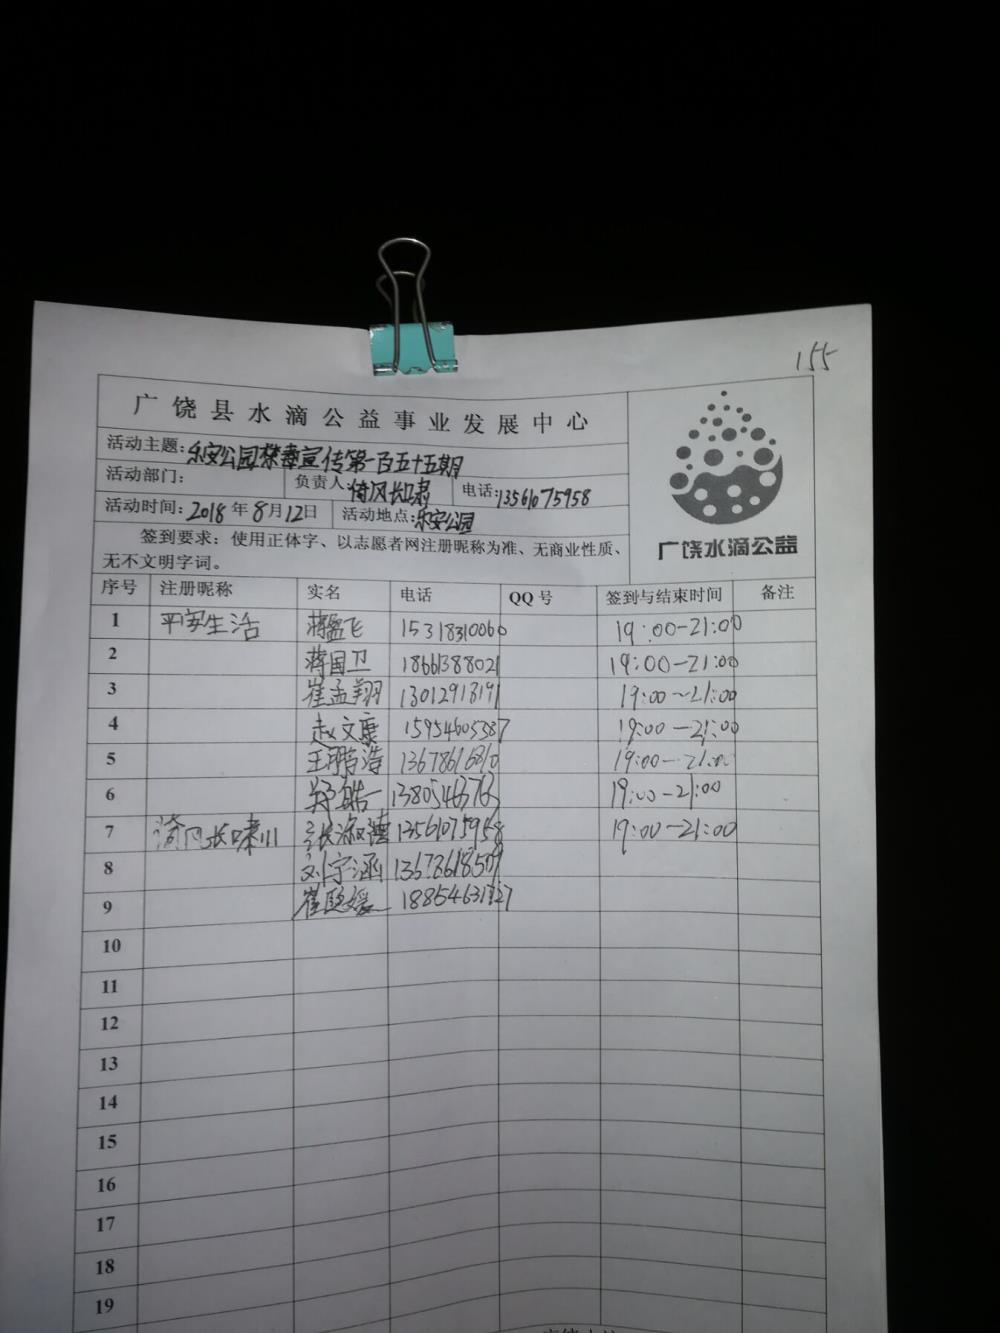 155
广饶县水滴公益事业发展中心
活动主题:乐安公园禁毒宣传第一百五十五期
活动部门: 负责人:倚风长啸 电话:13561075958
活动时间:2018年8月12日 活动地点:乐安公园
签到要求:使用正体字、以志愿者网注册昵称为准、无商业性质、
无不文明字词。
广饶水滴公益
序号 注册昵称 实名 电话 QQ号 签到与结束时间 备注
1 平安生活 蒋飞 15318310060 19:00-21:00
2 蒋国卫 18661388021 19:00-21:00
3 崔孟翔 13012918191 19:00~21:00
4 赵文康 15954605387 19:00-21:00
5 王鹏涛 13678616810 19:00-21:00
6 郑皓一 13805463763 19:00-21:00
7 倚风长啸 张淑德 13561075958 19:00-21:00
8 刘宇涵 13678618509
9 崔媛 18854631127
10
11
12
13
14
15
16
17
18
19